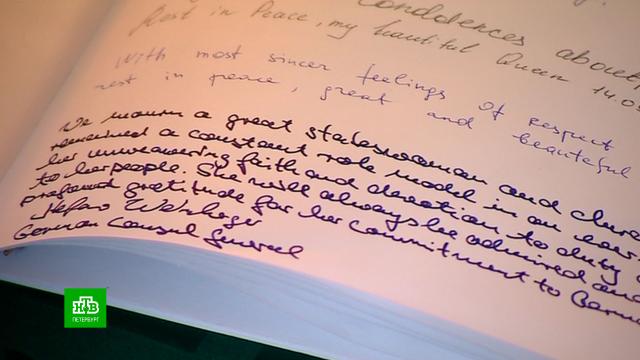 condolences about
Rest in Peace, my beautiful Queen 14.0
With most sincer feelings of respect
rest in peace, great and beautiful
We mourn a great stateswoman and
remained a constant role model in an
her unwavering faith and devotion to duty
to her people. She will always be admired and
profound gratitude for her commitment to
German Consul General
НТВ
ПЕТЕРБУРГ